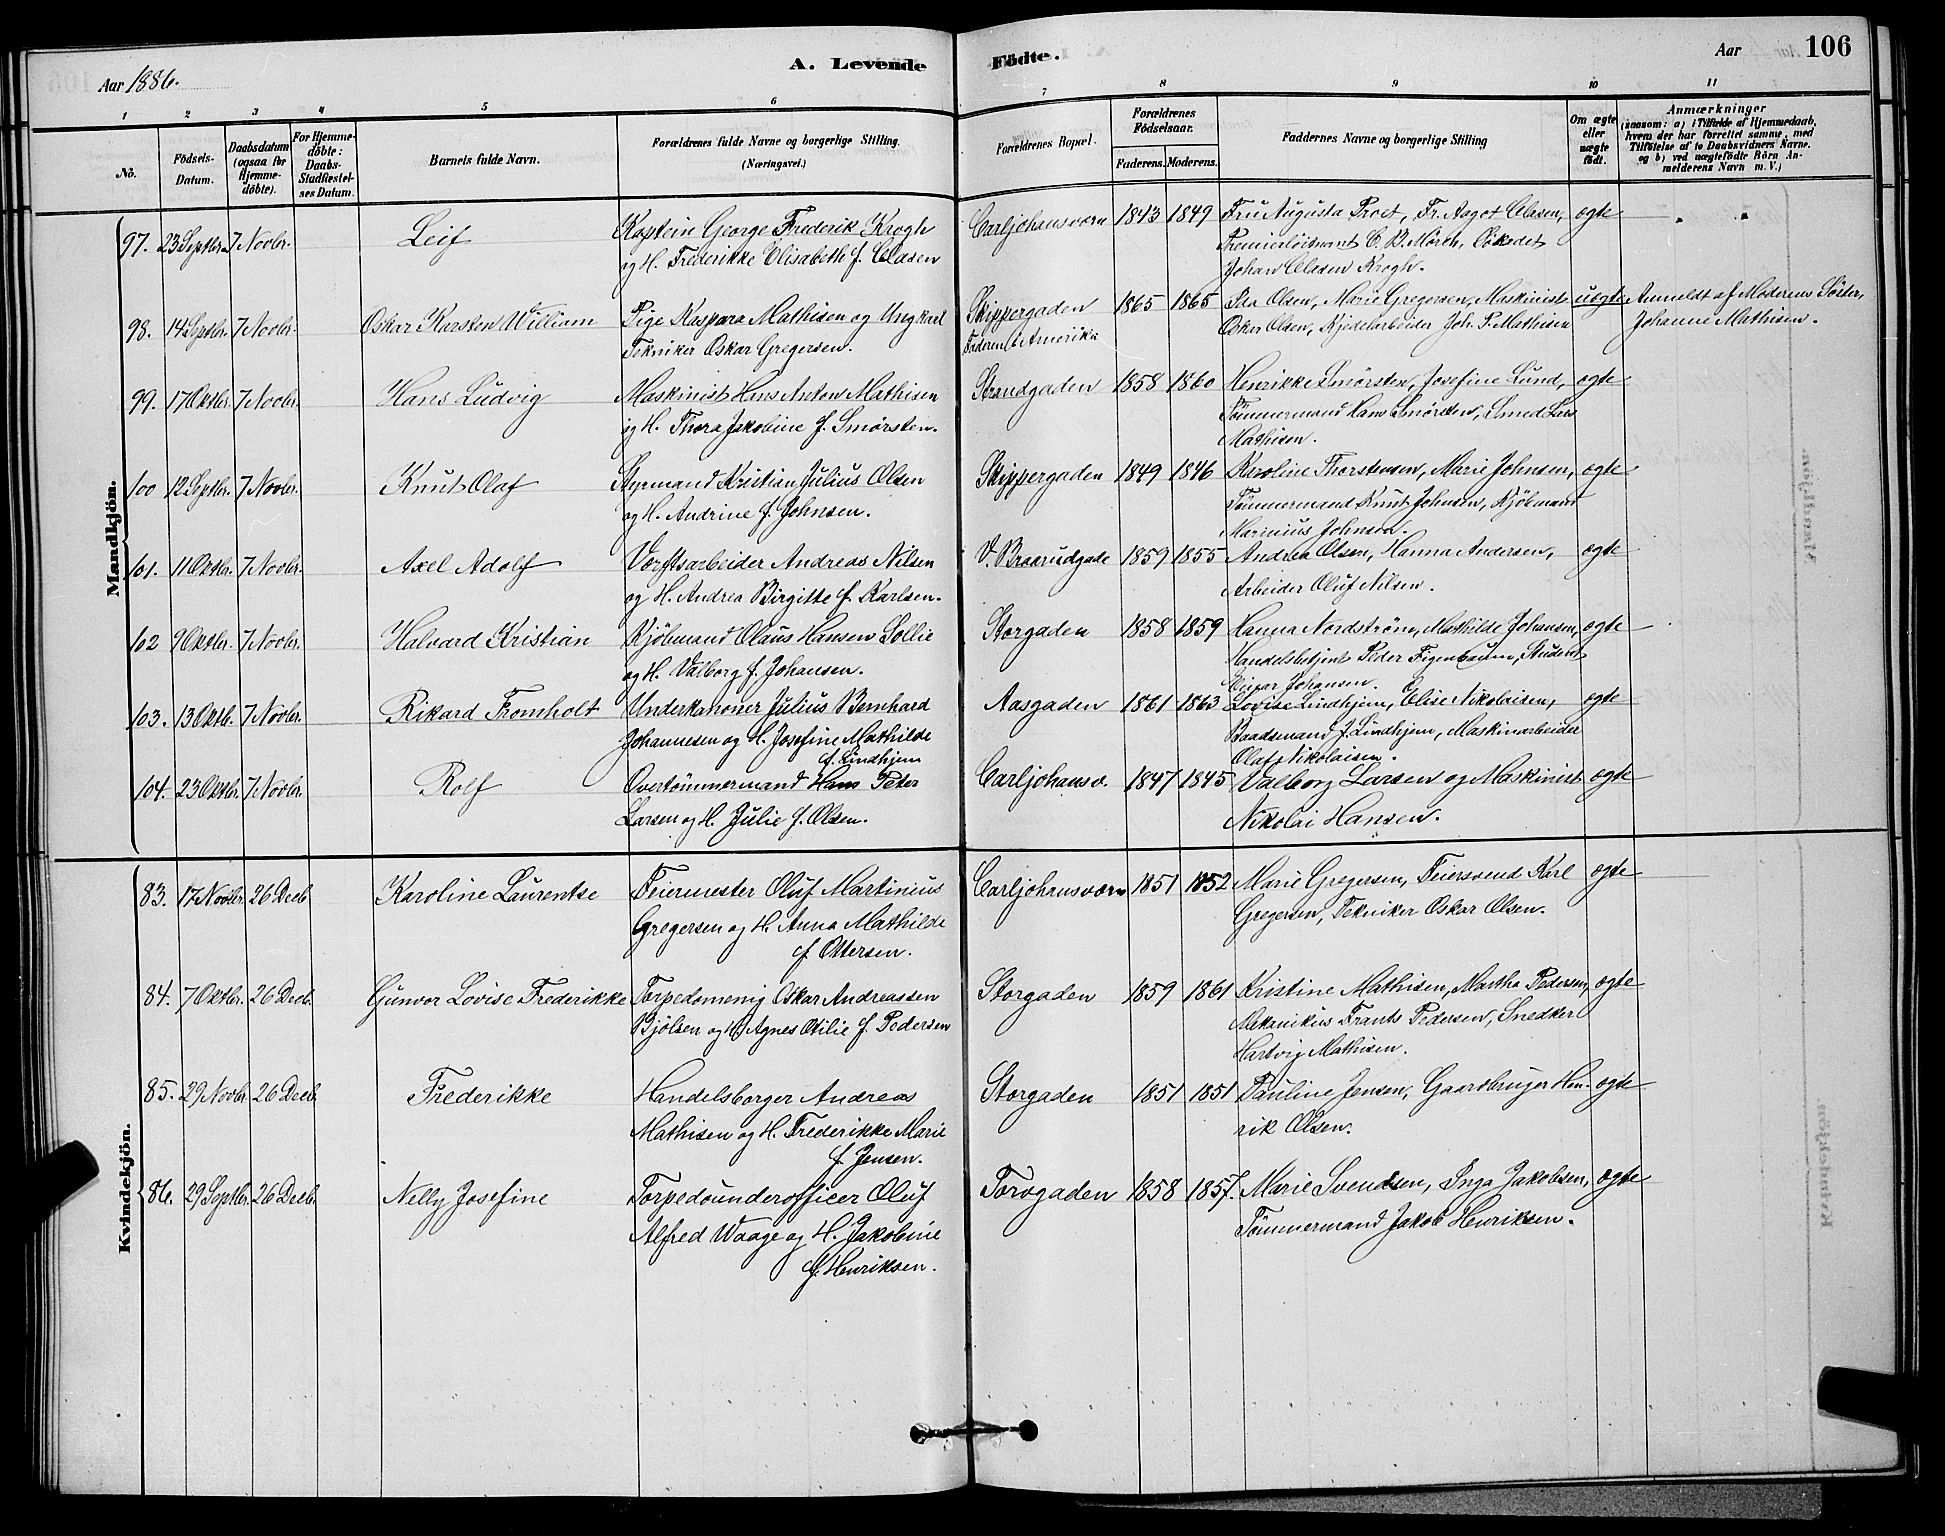 Aar 1886.
A. Levende Födte.
Aar 106
1 2 3 4 5 6 7 8 9 10 11
No.
Födsels-Datum.
Daabsdatum (ogsaa for Hjemme-döbte).
For Hjemme-döbte: Daabs-Stadfæstel-ses Datum.
Barnets fulde Navn.
Forældrenes fulde Navne og borgerlige Stilling. (Næringsvei.)
Forældrenes Bopæl.
Forældrenes Födselsaar.
Faderens. Moderens.
Faddernes Navne og borgerlige Stilling
Om ægte eller uægte födt.
Anmærkninger
(saasom: a) i Tilfælde af Hjemmedaab,
hvem der har forrettet samme, med
Tilföielse af to Daabsvidners Navne.
og b) ved uægtefödte Börn An-
melderens Navn m. V.)
Mandkjön.
97. 23 Septbr. 7 Novbr. Leif Kaptein George Frederik Krogh Carljohansværn 1843 1849 Fru Augusta Proet, Fr. Aagot Clasen, ægte
og H. Frederikke Elisabeth f. Clasen Premierløitnant C. B. Mörch,
Johan Clasen Krogh.
98. 14 Septbr. 7 Novbr. Oskar Karsten William Pige Kaspara Mathisen og Ungkarl Skippergaden 1865 1865 Olsen, Marie Gregersen, Maskinist uægte Anmeldt af Moderens Söster,
Tekniker Oskar Gregersen. Faderen i Amerika Oskar Olsen, Kjedelarbeider Joh. P. Mathisen Johanne Mathisen.
99. 17 Oktbr. 7 Novbr. Hans Ludvig Maskinist Hans Anton Mathisen Strandgaden 1858 1860 Henrikke Smörsten, Josefine Lund, ægte
og H. Thora Jakobine f. Smörsten. Tömmermand Hans Smörsten, Smed Lars
Mathisen.
100 12 Septbr. 7 Novbr. Knut Olaf Styrmand Kristian Julius Olsen Skippergaden 1849 1846 Karoline Thorstensen, Marie Johnsen, ægte
og H. Andrine f. Johnsen. Tömmermand Knut Johnsen, Kjöbmand
Marinius Johnsen.
101. 11 Oktbr. 7 Novbr. Axel Adolf Værftsarbeider Andreas Nilsen V. Braarudgade 1859 1855 Andrea Olsen, Hanna Andersen, ægte
og H. Andrea Birgitte f. Karlsen. Arbeider Oluf Nilsen.
102 9 Oktbr. 7 Novbr. Halvard Kristian Kjöbmand Olaus Hansen Sollie Storgaden 1858 1859 Hanna Nordström, Mathilde Johansen, ægte
og H. Valborg f. Johansen. Handelsbetjent Peder Figenbaum, Student
Einar Johansen.
103. 13 Oktb. 7 Novbr. Rikard Fromholt Underkanoner Julius Bernhard Aasgaden 1861 1863 Lovise Lindhjem, Elise Nikolaisen, ægte
Johannesen og H. Josefine Mathilde Baadsmand J. Lindhjem, Maskinarbeider
f. Lindhjem Olaf Nikolaisen.
104. 23 Oktbr. 7 Novbr. Rolf Overtömmermand Hans Peter Carljohansv. 1847 1845 Valborg Larsen og Maskinist ægte
Larsen og H. Julie f. Olsen. Nikolai Hansen.
Kvindekjön.
83. 17 Novbr. 26 Decb Karoline Laurentse Feiermester Oluf Martinius Carljohansværn 1851 1852 Marie Gregersen, Feiersvend Karl ægte
Gregersen og H. Anna Mathilde Gregersen, Tekniker Oskar Olsen.
f. Ottersen.
84. 7 Oktbr. 26 Decb. Gunvor Lovise Frederikke Torpedomenig Oskar Andreassen Storgaden 1859 1861 Kristine Mathisen, Martha Pedersen, ægte
Bjölsen og H. Agnes Otilie f. Pedersen Mekanikus Frants Pedersen, Snedker
Hartvig Mathisen.
85. 29 Novbr. 26 Decb. Frederikke Handelsborger Andreas Storgaden 1851 1851 Pauline Jensen, Gaardbruger Hen- ægte
Mathisen og H. Frederikke Marie rik Olsen.
f. Jensen.
86. 29 Septbr. 26 Decb. Nelly Josefine Torpedounderofficer Oluf Torvgaden 1858 1857. Marie Svendsen, Inga Jakobsen, ægte
Alfred Waage og H. Jakobine Tömmermand Jakob Henriksen.
f. Henriksen.